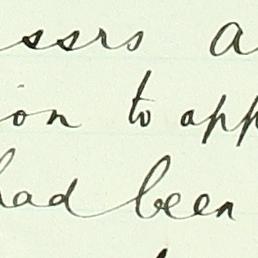 ssrs a
ion to app
had been